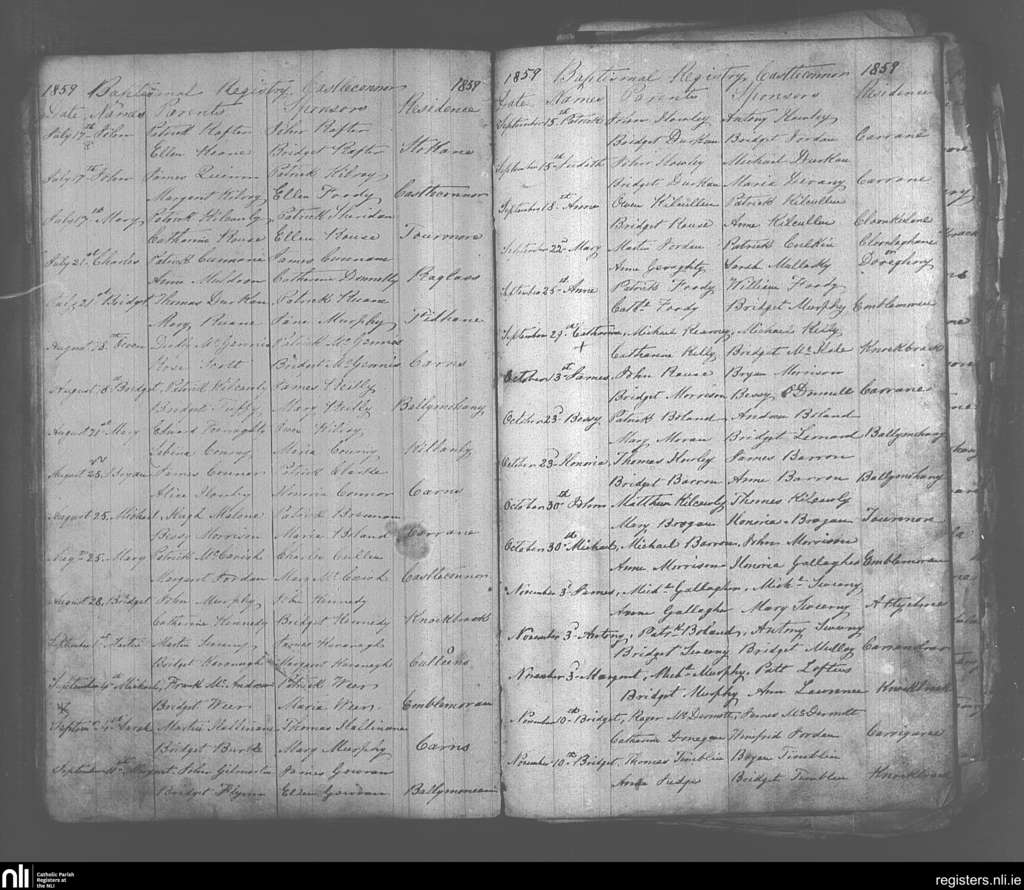 1859 Baptismal Registry Castleconnor 1859
Date Names Parents Sponsors Residence
July 17th John Patrick Rafter John Rafter
Ellen Keane Bridget Rafter Stokane
July 17th John James Queenin Patrick Kilroy
Margaret Kilroy Ellen Foody Castleconnor
July 17th Mary Patrick Kilcawly Patrick Sheridan
Catharine Rouse Ellen Rouse Tourmore
July 21st Charles Patrick Cunnane James Cunnane
Anne Muldoon Catharine Donnelly Raglass
July 21st Bridget Thomas Durkan Patrick Ruane
Mary Ruane Jane Murphy
August 15 Owen McGennis Patrick McGennis
Rose Scott Bridget McGennis Carns
August Bridget Patrick Kilcawly James Reilly
Bridget Mary Reilly Ballymoghany
August 21st Mary Edward Owen Kilroy
Sabina Conroy Maria Conroy Killanly
August 25 Bryan James Connor Patrick Clarke
Alice Hawley Honoria Connor Carns
August 25 Michael Hugh Malone Patrick Brennan
Bessy Morrison Maria Boland Corrane
Aug 25 Mary Patrick McCarrick Charles Cullen
Margaret Jordan Mary McCarrick Castleconnor
August 28 Bridget John Murphy Kennedy
Catharine Kennedy Bridget Kennedy Knockbrack
September 1st Martin Martin Sweeny James Kavanagh
Bridget Kavanagh Margaret Kavanagh Culleens
September 4th Michael, Frank McAndrew Patrick Weir
Bridget Weir Maria Weir Emblemoran
Septem 4th Sarah Martin Hallinane Thomas Hallinane
Bridget Burke Mary Murphy Carns
September Margaret John Gilmartin James Gowran
Bridget Flynn Ellen Gowran Ballymoneen
1859 Baptismal Registry, Castleconnor 1859
Date Names Parents Sponsors Residence
September 15th Patrick John Howley Antony Howley
Bridget Durkan Bridget Jordan Carrane
September 15th Judith John Howley Michael Durkan
Bridget Durkan Maria Carrane
September 18th Anne Owen Kilcullen Patrick Kilcullen
Bridget Rouse Anne Kilcullen Cloonkeelane
September 22nd Mary Martin Jordan Patrick Culkin Cloonlaghane
Anne Geraghty Sarah Mullaly or Dooyeghny
September 25th Anne Patrick Foody William Foody
Cath Foody Bridget Murphy Emblemoran
September 29th Catharine, Michael Kearney Michael Reily
+
Catharine Kelly Bridget McHale Knockbrack
October 3rd James John Rouse Bryan Morrison
Bridget Morrison Bessy Carrane
October 23rd Bessy Patrick Boland Andrew Boland
Mary Moran Bridget Lenard Ballymoghany
October 23rd Honoria Thomas Howley James Barron
Bridget Barron Anne Barron Ballymoghany
October 30th John Matthew Kilcawly Thomas Kilcawly
Mary Brogan Honoria Brogan Tourmore
October 30th Michael, Michael Barron, John Morrison
Anne Morrison Honoria Gallagher Emblemoran
November 3rd James, Michl Gallagher, Michl Sweeny
Anne Gallagher Mary Sweeny Attychree
November 3rd Antony, Patrk Boland, Antony Sweeny
Bridget Sweeny Bridget Mulloy Carrandrar
November 3rd Margaret, Michl Murphy, Patt Loftus
Bridget Murphy Ann Lawrence Knockbrack
November 10th Bridget, Roger McDermott, James McDermott
Catharine Donegan Winifred Jordan Carrigarae
November 10th Bridget, Thomas Timblin Bryan Timblin
Anne Judge Bridget Timblin Knockbrack
nli Catholic Parish
Registers at
the NLI
registers.nli.ie